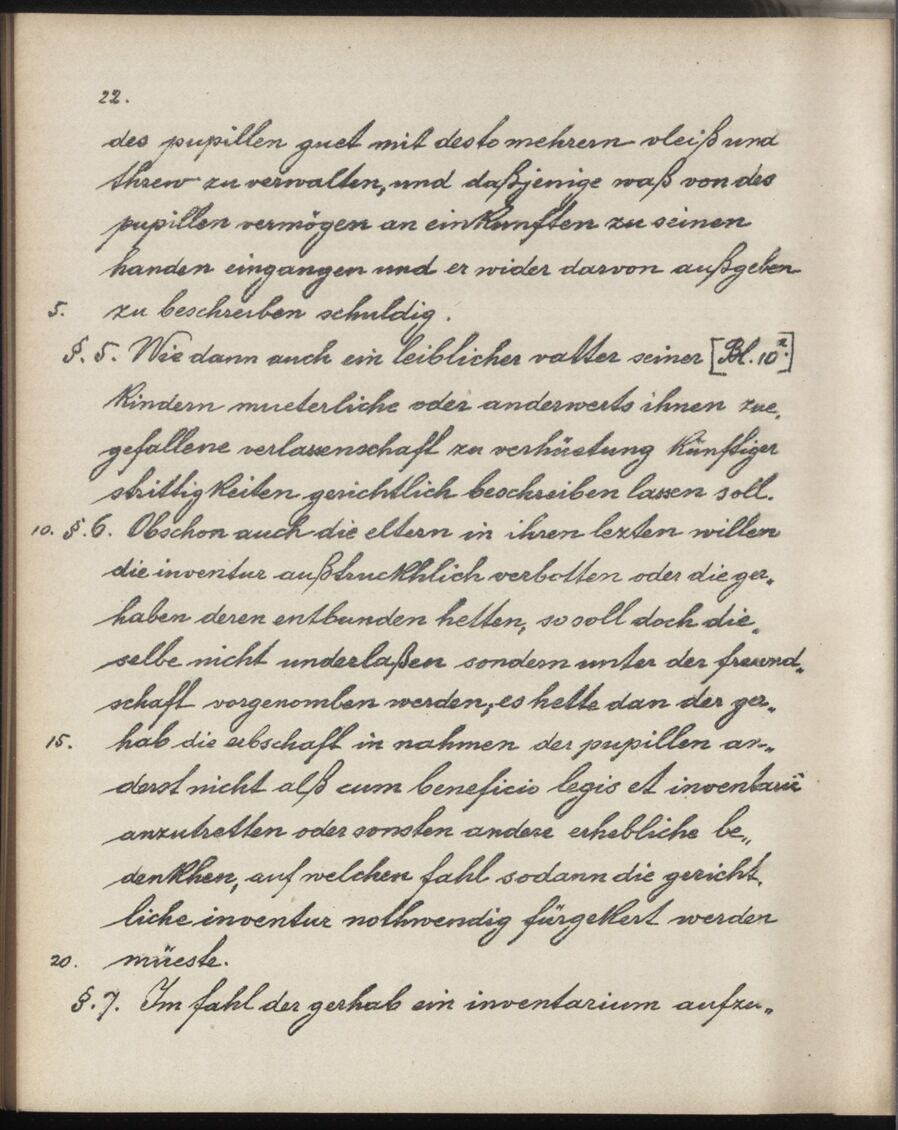 22.
des pupillen guet mit desto mehrern vleiß und
threw zu verwalten, und daßjenige waß von des
pupillen vermögen an einkunften zu seinen
handen eingangen und er wider darvon außgeben
5. zu beschreiben schuldig.
§. 5. Wie dann auch ein leiblicher vatter seiner [Bl. 10r.]
kindern mueterliche oder anderwerts ihnen zue„
gefallene verlassenschaft zu verhüetung künftiger
strittigkeiten gerichtlich beschreiben lassen soll.
10. §. 6. Obschon auch die eltern in ihren lezten willen
die inventur außtruckhlich verbotten oder die ger„
haben deren entbunden hetten, so soll doch die„
selbe nicht underlaßen sondern unter der freund„
schaft vorgenomben werden, es hette dan der ger„
15. hab die erbschaft in nahmen der pupillen an„
derst nicht alß cum beneficio legis et inventarii
anzutretten oder sonsten andere erhebliche be„
denkhen, auf welchen fahl sodann die gericht„
liche inventur nothwendig fürgekert werden
20. müeste.
§. 7. Im fahl der gerhab ein inventarium aufzu„